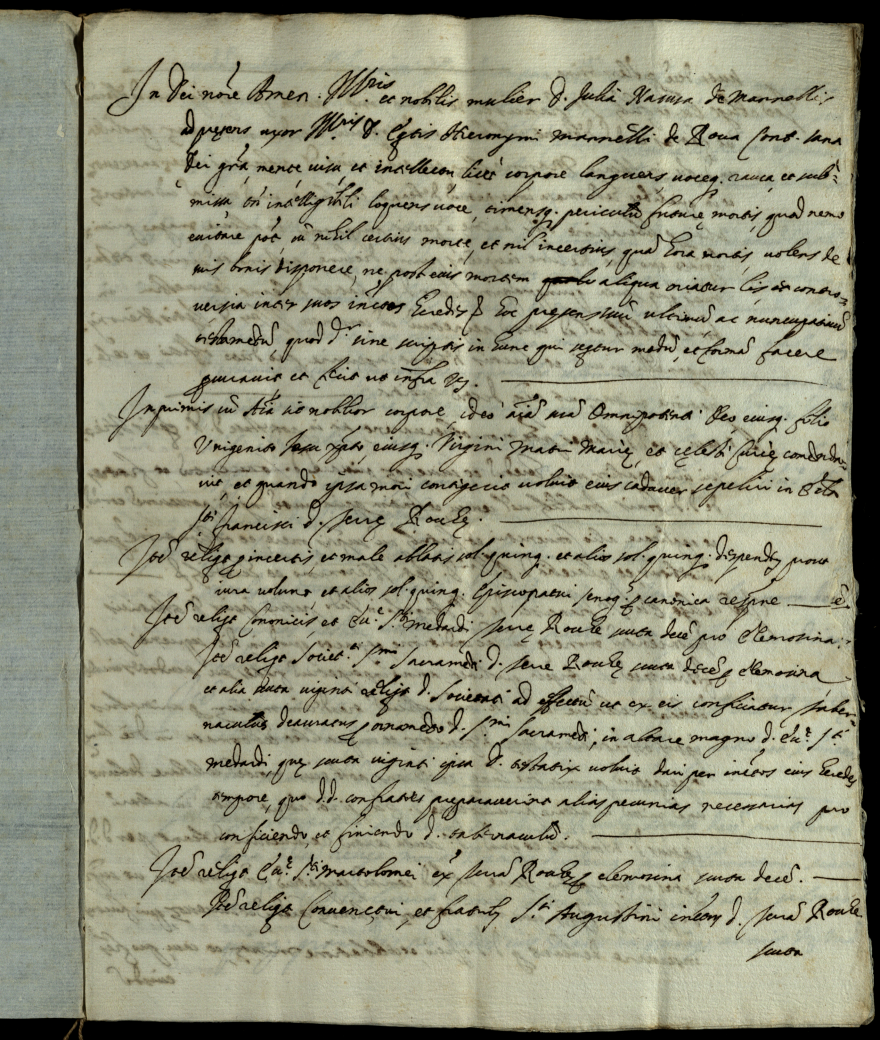 In Dei noĩe Amen. Ill.ris et nobilis mulier D. Julia de Mannellis
ad presens uxor Ill.ris D. Hieronymi Mannelli de Rocca Cont. sana
Dei gr̃a mente visu, et intellectu licet corpore languens voceq. rauca et sub=
missa tñ intelligibili loquens voce, timensq. periculũ futurę mortis, quod nemo
evitare põt, cũ nihil certius morte, et nil incertius, quã hora mortis, volens de
suis bonis disponere, ne post eius mortem aliqua oriatur lis et contro=
versia inter suos heredes p hoc presens suũ ultimũ ac nuncupativũ
testamentũ, quod dr̃ sine scriptis in hunc qui seqtur modũ, et formã facere
procuravit et fecit ut infra vz.
Inprimis cũ aĩa sit nobilior corpore, ideo aĩam suã Omnipotenti Deo eiusq. filio
Unigenito Iesu xpto eiusq. Virgini Matri Marię, et cęlesti Curię comendavit
et quando ipsam mori contigerit voluit eius cadaver sepeliri in
S.ti Francisci d. Terrę Rocchę.
Itẽ reliqt p incertis et male ablatis sol. quinq. et alios sol. quinq. dispendẽ prout
iura volunt et alios sol. quinq. Episcopatui p canonica
Itẽ reliqt Canonicis et S.ti Medardi Terrę Rocchę scuta decẽ pro elemosina.
Itẽ reliqt Societ.ti S.mi Sacramẽti d. Terrę Rocchę scuta decẽ p elemosina
et alia scuta viginti reliqt d. Societati ad effectũ ut ex eis conficiatur taber=
naculus deauratus p ornamẽto d. S.mi Sacramẽti, in altare magno d. S.ti
Medardi, quę scuta viginti ipsa D. testatrix voluit dari per eius heredes
tempore, quo d.d. confratres preparaverint alias pecunias necessarias pro
conficiendo, et finiendo d. tabernaculũ.
Itẽ reliqt S.ti Bartolomei ex Terrã Rocchę p elemosina scuta decẽ.
Itẽ reliqt Conventui, et fratribus S.ti Augustini d. Terrã Rocchę
scuta